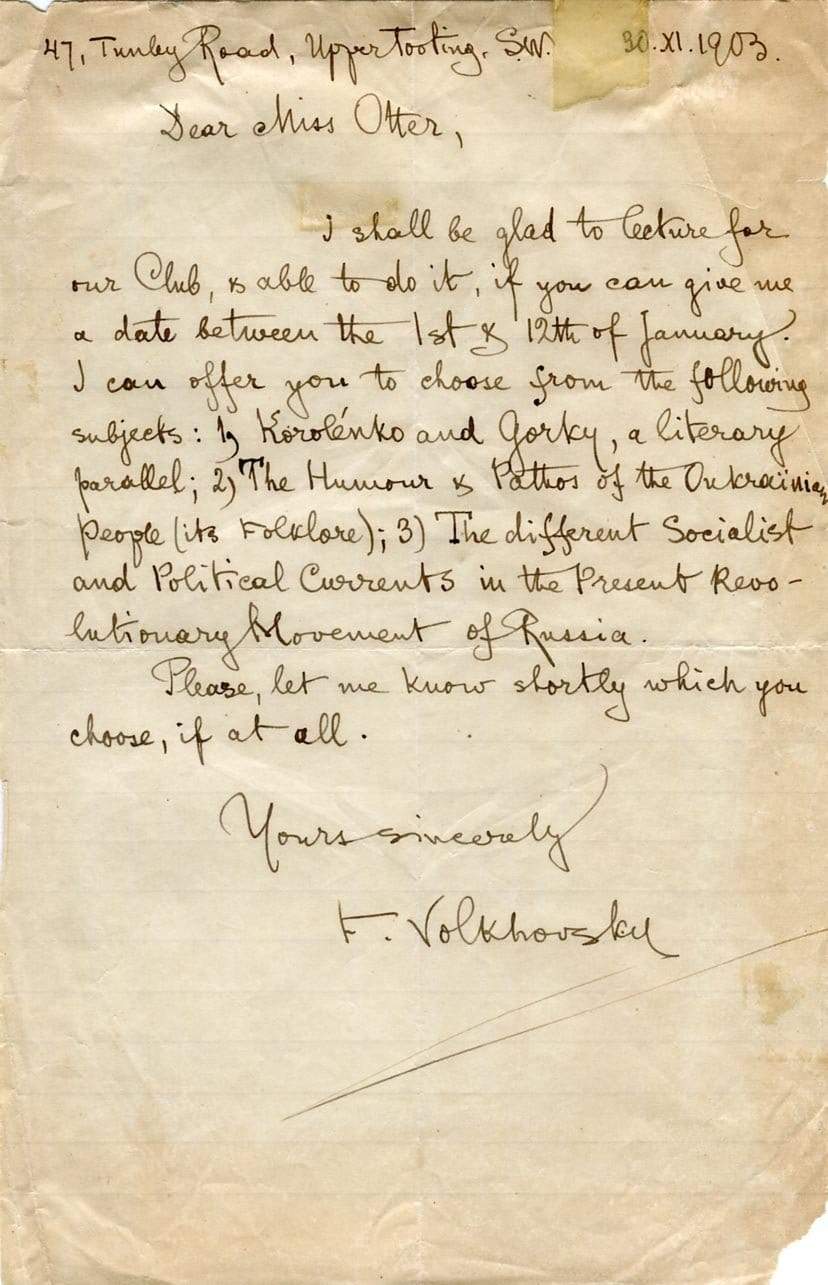 47, Tunley Road, Upper Tooting. S.W. 30.XI.1903.
Dear Miss Otter,
I shall be glad to lecture for
our Club, & able to do it, if you can give me
a date between the 1st & 12th of January.
I can offer you to choose from the following
subjects: 1) Korolénko and Gorky, a literary
parallel; 2) The Humour & Pathos of the Oukraïnian
People (its Folklore); 3) The different Socialist
and Political Currents in the Present Revo-
lutionary Movement of Russia.
Please, let me know shortly which you
choose, if at all.
Yours sincerely
F. Volkhovsky